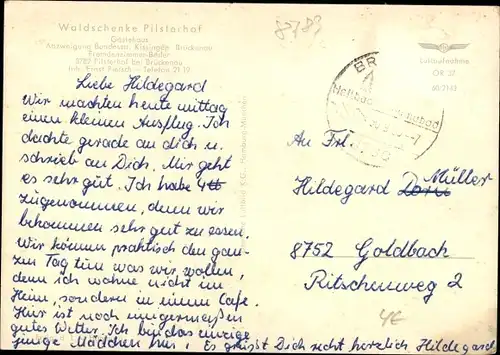 Waldschenke Pilsterhof
Gästehaus
Abzweigung Bundesstr. Kissingen-Brückenau
Fremdenzimmer-Bäder
8789 Pilsterhof bei Brückenau
Inh. Ernst Tel. 21 19
Luftaufnahme
OR 37
60/2143
Liebe Hildegard
Wir machten heute mittag
einen kleinen Ausflug. Ich
dachte gerade an dich u.
schrieb an Dich. Mir geht
es sehr gut. Ich habe 4 ℔
zugenommen, denn wir
bekommen sehr gut zu essen.
Wir können praktisch den gan-
zen Tag tun was wir wollen,
denn ich wohne nicht im
Heim, sondern in einem Cafe.
Hier ist noch einigermaßen
gutes Wetter. Ich bin das einzige
junge Mädchen hier. Es grüßt Dich recht herzlich Hildegard
An Frl.
Hildegard Müller
8752 Goldbach
Ritschenweg 2
4€